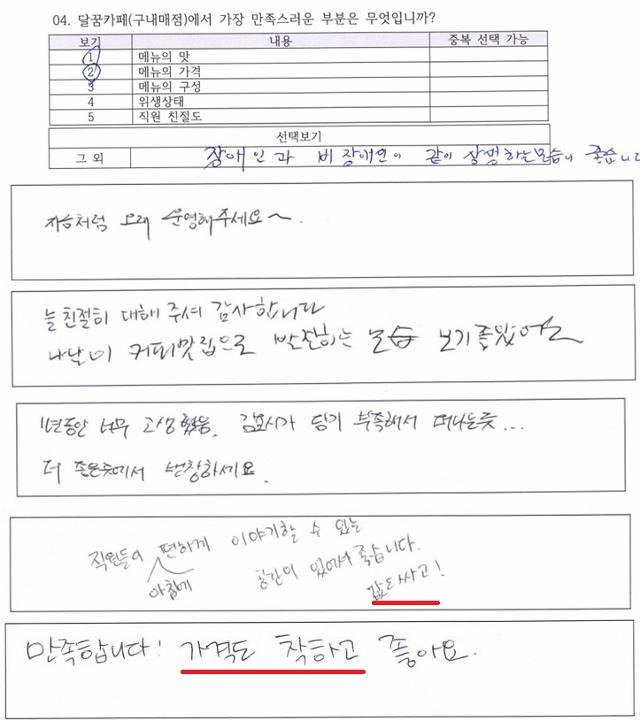 04. 달꿈카페(구내매점)에서 가장 만족스러운 부분은 무엇입니까?
보기 내용 중복 선택 가능
1 메뉴의 맛
2 메뉴의 가격
3 메뉴의 구성
4 위생상태
5 직원 친절도
선택보기
그 외 장애인과 비장애인이 같이 상생하는모습이 좋습니다
지금처럼 오래 운영해주세요~.
늘 친절히 대해 주셔 감사합니다
나날이 커피맛집으로 발전하는 모습 보기좋았어요
1년동안 너무 고생했음. 김포시가 담기 부족해서 떠나는듯...
더 좋은곳에서 번창하세요.
직원들이 편하게 이야기할 수 있는
아침에 공간이 있어서 좋습니다.
값도싸고!
만족합니다! 가격도 착하고 좋아요.